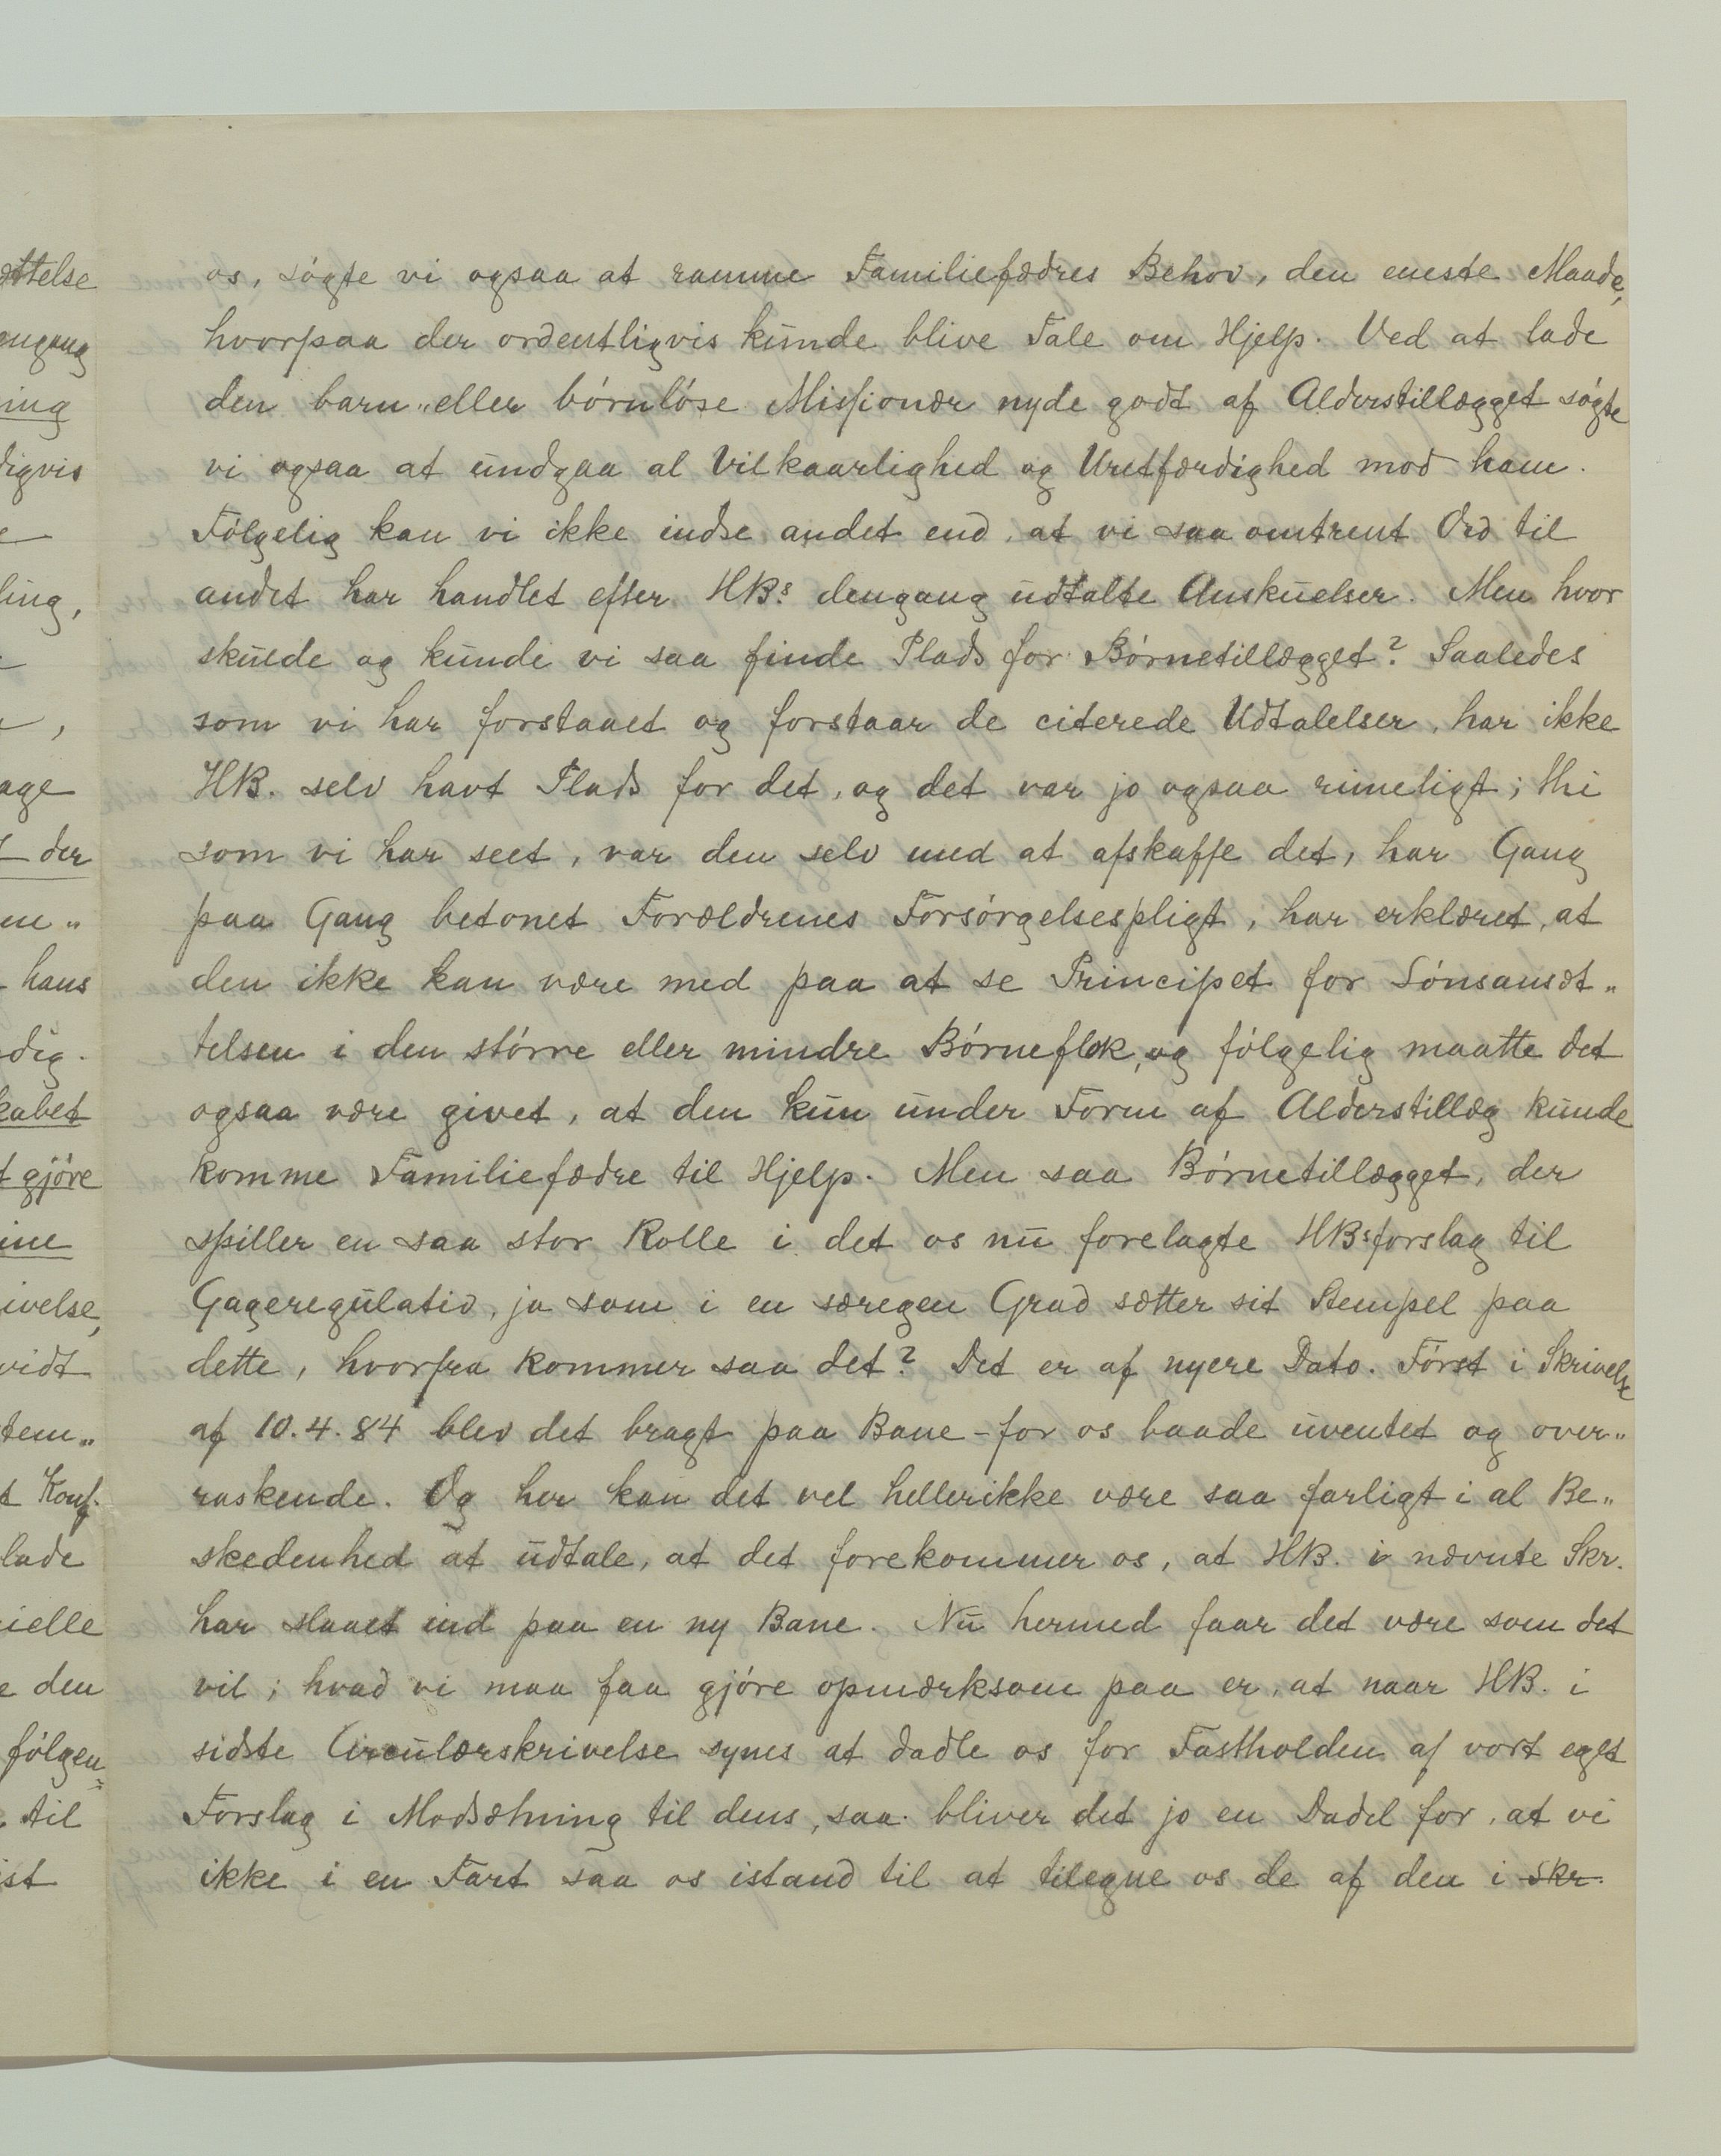 os, søgte vi ogsaa at ramme Familiefædres Behov, den eneste Maade,
hvorpaa der ordentligvis kunde blive Tale om Hjelp. Ved at lade
den barn„eller børnløse Missionær nyde godt af Alderstillægget søgte
vi ogsaa at undgaa al Vilkaarlighed og Uretfærdighed mod ham.
Følgelig kan vi ikke indse andet end, at vi saa omtrent Ord til
andet har handlet efter HBs dengang udtalte Anskuelser. Men hvor
skulde og kunde vi saa finde Plads for Børnetillægget? Saaledes
som vi har forstaaet og forstaar de citerede Udtalelser, har ikke
HB. selv havt Plads for det, og det var jo ogsaa rimeligt; thi
som vi har seet, var den selv med at afskaffe det, har Gang
paa Gang betonet Forældrenes Forsørgelsespligt, har erklæret, at
den ikke kan være med paa at se Principet for Lønsansæt„
telsen i den større eller mindre Børneflok, og følgelig maatte det
ogsaa være givet, at den kun under Form af Alderstillæg kunde
komme Familiefædre til Hjelp. Men saa Børnetillægget, der
spiller en saa stor Rolle i det os nu forelagte HBsforslag til
Gageregulativ, ja som i en særegen Grad sætter sit Stempel paa
dette, hvorfra kommer saa det? Det er af nyere Dato. Først i Skrivelse
af 10.4.84 blev det bragt paa Bane - for os baade uventet og over„
raskende. Og her kan det vel hellerikke være saa farligt i al Be„
skedenhed at udtale, at det forekommer os, at HB. i nævnte Skr.
har slaaet ind paa en ny Bane. Nu hermed faar det være som det
vil; hvad vi maa faa gjøre opmærksom paa er, at naar HB. i
sidste Circulærskrivelse synes at dadle os for Fastholden af vort eget
Forslag i Modsætning til dens, saa bliver det jo en Dadel for, at vi
ikke i en Fart saa os istand til at tilegne os de af den i Skr.